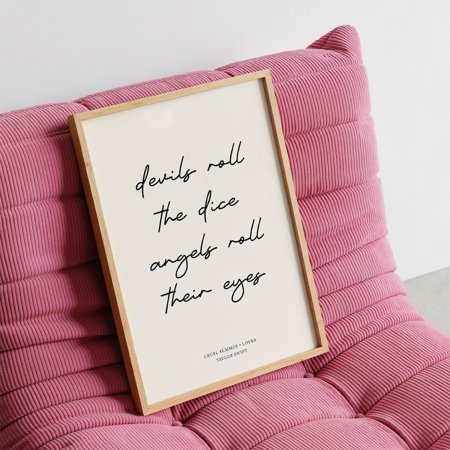 devils roll
the dice
angels roll
their eyes
CRUEL SUMMER • LOVER
TAYLOR SWIFT